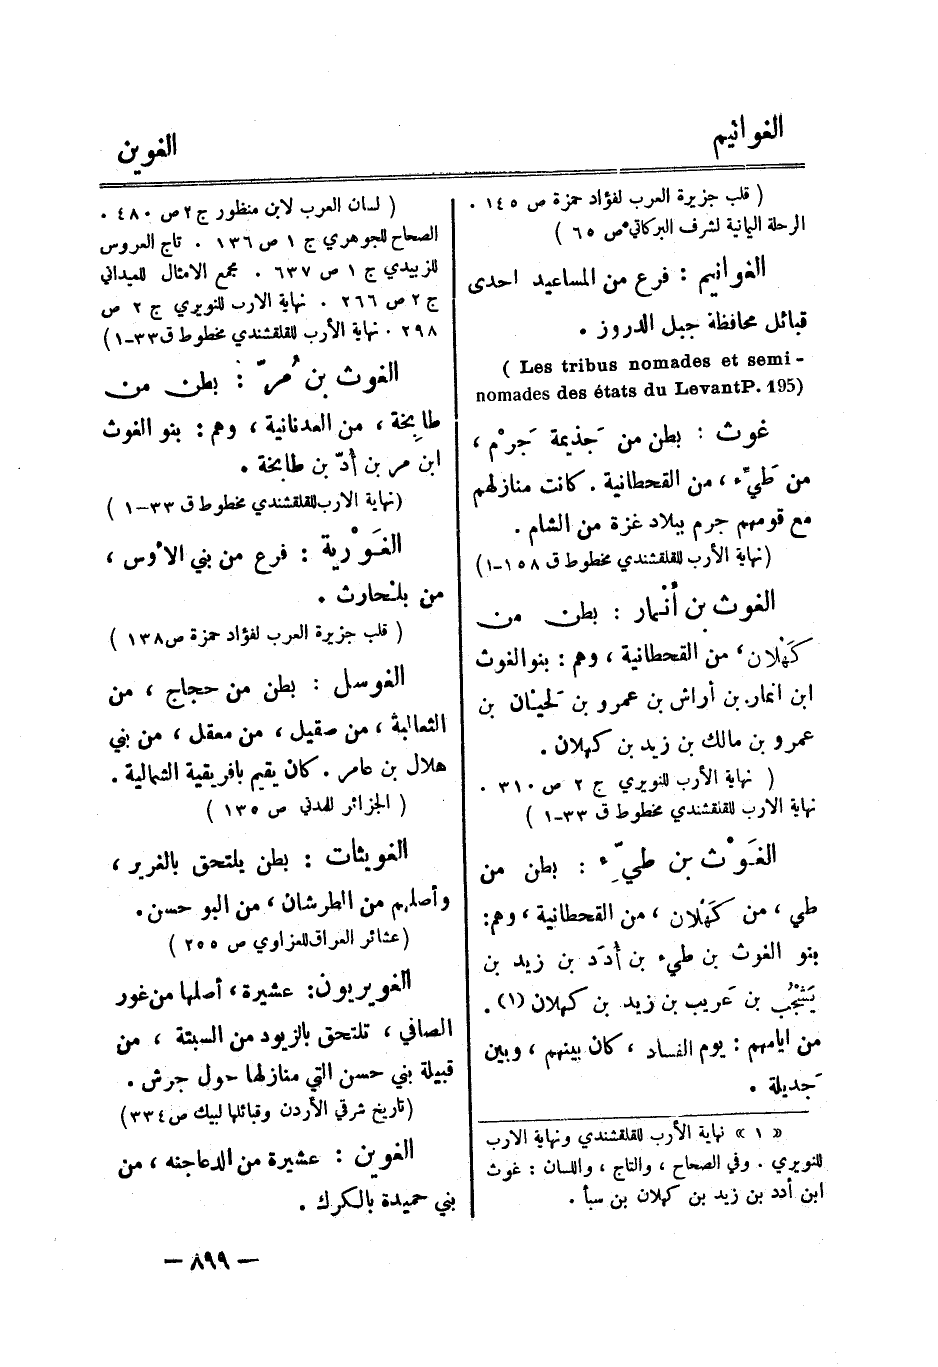 الغوانيم
الغوين
( قلب جزيرة العرب لفؤاد حمزة ص ١٤٥ .
الرحلة اليمانية لشرف البركاتي ص ٦٥ )
الغوانيم : فرع من المساعيد احدى
قبائل محافظة جبل الدروز .
( Les tribus nomades et semi -
nomades des états du LevantP. 195)
غوث : بطن من جَذيمة جَرْم ،
من طَيِّء ، من القحطانية . كانت منازلهم
مع قومهم جرم ببلاد غزة من الشام .
(نهاية الأرب للقلقشندي مخطوط ق ١٥٨-١)
الغوث بن أَنْمار : بطن من
كَهْلان ، من القحطانية ، وهم : بنو الغوث
ابن انمار بن أراش بن عمرو بن لَحْيان بن
عمرو بن مالك بن زيد بن كهلان .
( نهاية الأرب للنويري ج ٢ ص ٣١٠ .
نهاية الارب للقلقشندي مخطوط ق ٣٣-١ )
الغَوْث بن طيِّء : بطن من
طي ، من كَهْلان ، من القحطانية ، وهم:
بنو الغوث بن طيء بن أُدَد بن زيد بن
يَشْجُب بن عَريب بن زيد بن كهلان (١) .
من ايامهم : يوم الفساد ، كان بينهم ، وبين
جَديلة .
« ١ » نهاية الأرب للقلقشندي ونهاية الارب
للنويري . وفي الصحاح ، والتاج ، واللسان : غوث
ابن أدد بن زيد بن كهلان بن سبأ .
( لسان العرب لابن منظور ج ٢ ص ٤٨٠ .
الصحاح للجوهري ج ١ ص ١٣٦ . تاج العروس
للزبيدي ج ١ ص ٦٣٧ . مجمع الامثال للميداني
ج ٢ ص ٢٦٦ . نهاية الارب للنويري ج ٢ ص
٢٩٨ . نهاية الأرب للقلقشندي مخطوط ق ٣٣-١)
الغوث بن مُرّ : بطن من
طابِخة ، من العدنانية ، وهم : بنو الغوث
ابن مر بن أُدّ بن طابخة .
(نهاية الارب للقلقشندي مخطوط ق ٣٣-١ )
الغَوْرية : فرع من بني الأوس ،
من بلْحارث .
( قلب جزيرة العرب لفؤاد حمزة ص ١٣٨ )
الغوسل : بطن من حجاج ، من
الثعالبة ، من صقيل ، من معقل ، من بني
هلال بن عامر . كان يقيم بافريقية الشمالية .
( الجزائر للمدني ص ١٣٥ )
الغويثات : بطن يلتحق بالغرير ،
وأصلهم من الطرشان ، من البو حسن .
(عشائر العراق للعزاوي ص ٢٥٥ )
الغويريون: عشيرة ، أصلها من غور
الصافي ، تلتحق بالزيود من السبتة ، من
قبيلة بني حسن التي منازلها حول جرش .
(تاريخ شرقي الأردن وقبائلها لبيك ص ٣٣٤)
الغوين : عشيرة من الدعاجنه ، من
بني حميدة بالكرك .
— ٨٩٩ —